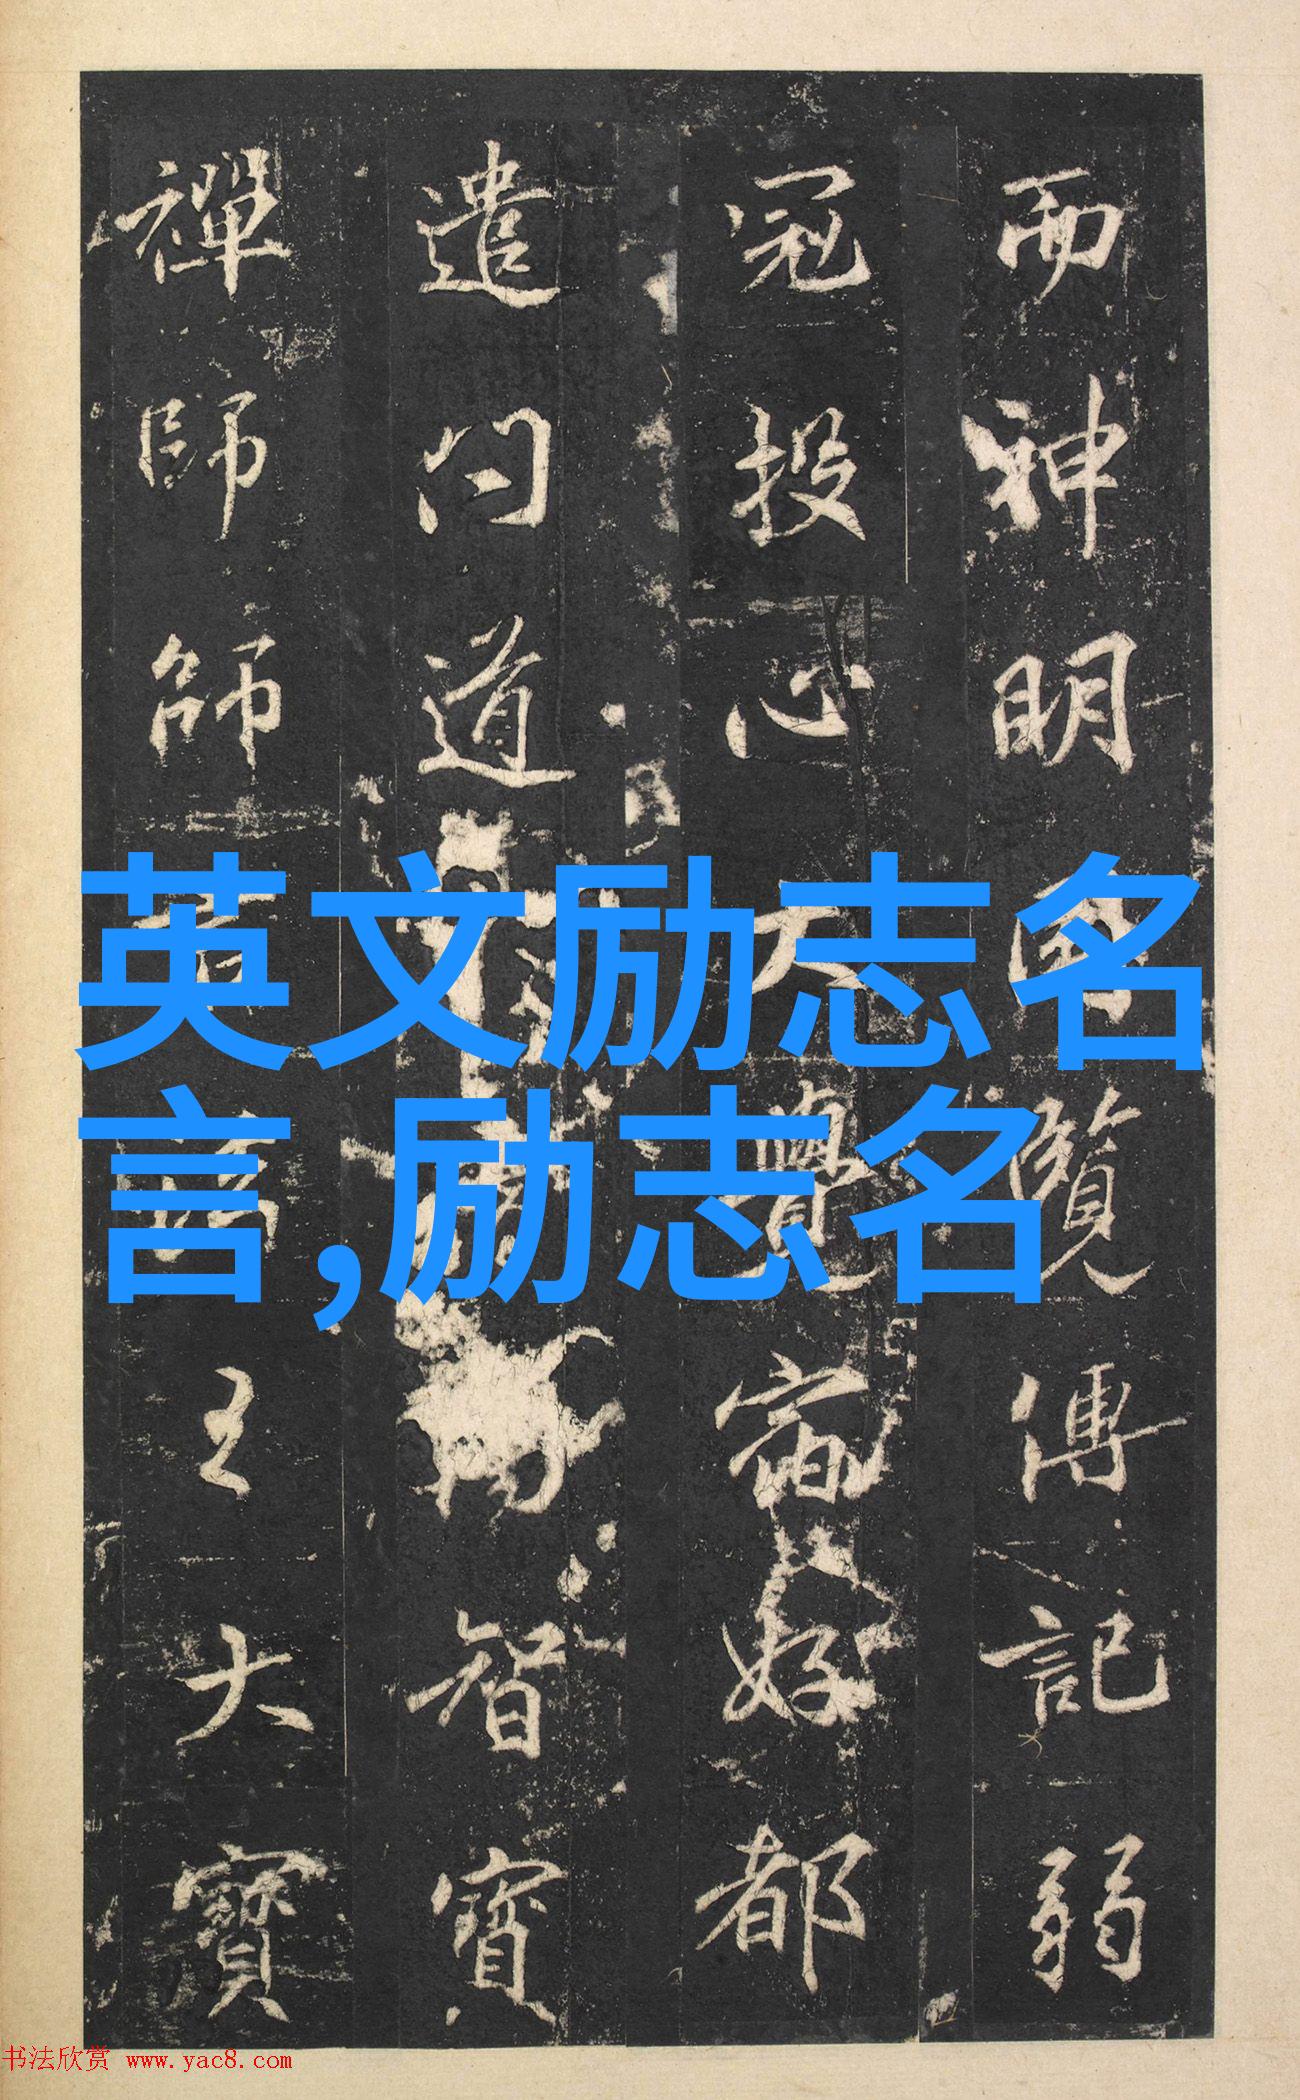 而神明覽傳記弱
冠投心大好都
遣問道智
禪師師王大寶
英文励志名
言,励志名
书法欣赏 www.yac8.com